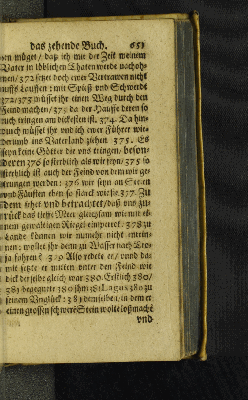 das zehende Buch. 651
nen müget / daß ich mit der Zeit meinem
Vater in löblichen Thaten werde nachoh-
men / 372 setzet doch ewer Vertrawen nicht
auffs Lauffen: mit Spieß und Schwerdt
372 / 373 müsset ihr einen Weg durch den
Feind machen / 373 da der Hauffe deren so
euch tringen am dickesten ist. 374. Da hin-
durch müsset ihr und ich ewer Führer wie-
derumb ins Vaterland ziehen 375. Es
seynd keine Götter die uns tringen, beson-
deren 376 so sterblich als wir seyn / 375 so
sterblich ist auch der Feind von dem wir ge-
trungen werden: 376 wir seyn an Seelen
und Fäusten eben so starck wie sie 377. Zu
dem sehet und betrachtet / daß uns zu-
rück das tieffe Meer gleichsam wie mit ei-
nem gewaltigen Riegel einsperret. 378 zu
Lande können wir nunmehr nicht entrin-
nen: wollet ihr denn zu Wasser nach Tro-
ja fahren? 379 Also redete er / vnd das
mit setzte er mitten unter den Feind wie
dick der selbe gleich war 380. Erstlich 380 /
381 begegnete 380 ihm
seinem Unglück: 381 demselben, in dem er
einen grossen schweren Stein wolte loß mach?
vnd